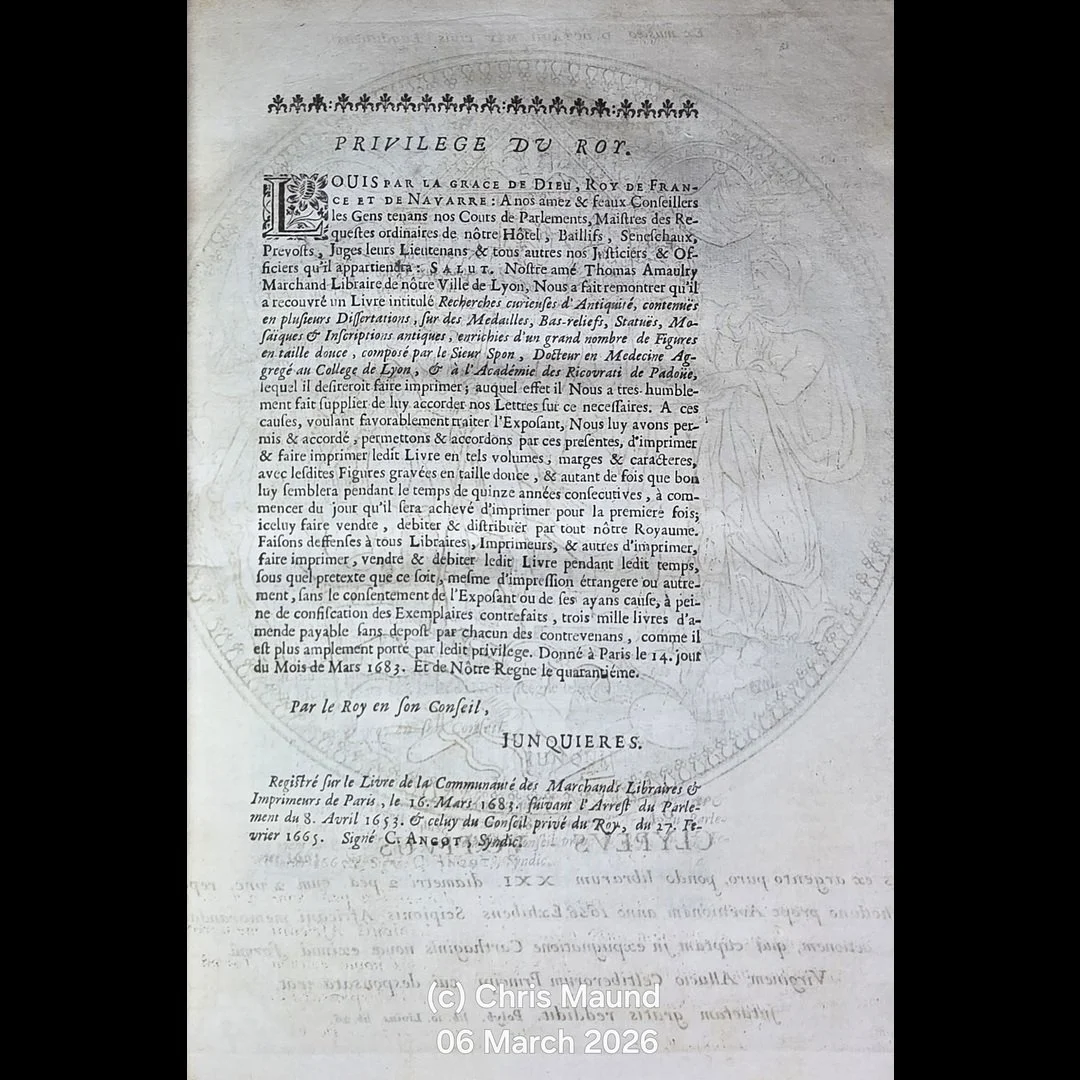 PRIVILEGE DU ROY.
LOUIS PAR LA GRACE DE DIEU, ROY DE FRAN-
CE ET DE NAVARRE : A nos amez & feaux Conseillers
les Gens tenans nos Cours de Parlements, Maistres des Re-
questes ordinaires de nôtre Hôtel, Baillifs, Seneschaux,
Prevosts, Juges leurs Lieutenans & tous autres nos Justiciers & Of-
ficiers qu'il appartiendra : SALUT. Nostre amé Thomas Amaulry
Marchand Libraire de nôtre Ville de Lyon, Nous a fait remontrer qu'il
a recouvré un Livre intitulé Recherches curieuses d'Antiquité, contenuës
en plusieurs Dissertations, sur des Medailles, Bas-reliefs, Statuës, Mo-
saïques & Inscriptions antiques, enrichies d'un grand nombre de Figures
en taille douce, composé par le Sieur Spon, Docteur en Medecine Ag-
gregé au College de Lyon, & à l'Académie des Ricovrati de Padoüe,
lequel il desireroit faire imprimer; auquel effet il Nous a tres-humble-
ment fait supplier de luy accorder nos Lettres sur ce necessaires. A ces
causes, voulant favorablement traiter l'Exposant, Nous luy avons per-
mis & accordé, permettons & accordons par ces presentes, d'imprimer
& faire imprimer ledit Livre en tels volumes, marges & caracteres,
avec lesdites Figures gravées en taille douce, & autant de fois que bon
luy semblera pendant le temps de quinze années consecutives, à com-
mencer du jour qu'il sera achevé d'imprimer pour la premiere fois;
iceluy faire vendre, debiter & distribuër par tout nôtre Royaume.
Faisons deffenses à tous Libraires, Imprimeurs, & autres d'imprimer,
faire imprimer, vendre & debiter ledit Livre pendant ledit temps,
sous quel pretexte que ce soit, mesme d'impression étrangere ou autre-
ment, sans le consentement de l'Exposant ou de ses ayans cause, à pei-
ne de confiscation des Exemplaires contrefaits, trois mille livres d'a-
mende payable sans depost par chacun des contrevenans, comme il
est plus amplement porté par ledit privilege. Donné à Paris le 14. jour
du Mois de Mars 1683. Et de Nôtre Regne le quarantiéme.
Par le Roy en son Conseil,
JUNQUIERES.
Registré sur le Livre de la Communauté des Marchands Libraires &
Imprimeurs de Paris, le 16. Mars 1683. suivant l'Arrest du Parle-
ment du 8. Avril 1653. & celuy du Conseil privé du Roy, du 27. Fe-
vrier 1665. Signé C. ANGOT, Syndic.
(c) Chris Maund
06 March 2026